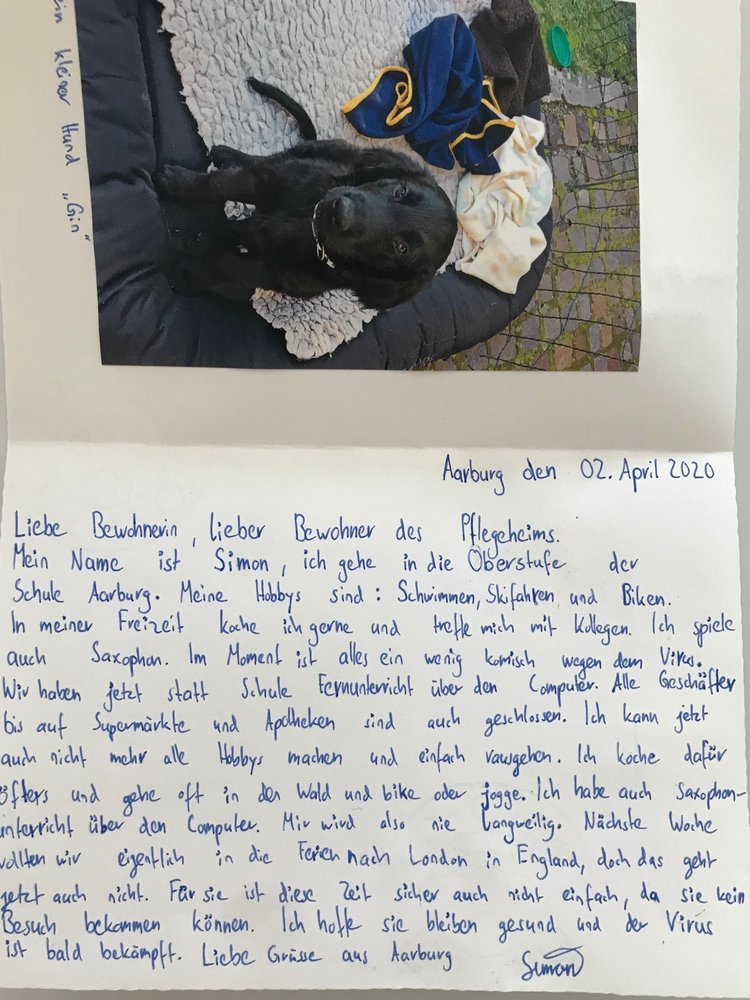 ein kleiner Hund „Gin“
Aarburg den 02. April 2020
Liebe Bewohnerin, lieber Bewohner des Pflegeheims.
Mein Name ist Simon, ich gehe in die Oberstufe der
Schule Aarburg. Meine Hobbys sind: Schwimmen, Skifahren und Biken.
In meiner Freizeit koche ich gerne und treffe mich mit Kollegen. Ich spiele
auch Saxophon. Im Moment ist alles ein wenig komisch wegen dem Virus.
Wir haben jetzt statt Schule Fernunterricht über den Computer. Alle Geschäfter
bis auf Supermärkte und Apotheken sind auch geschlossen. Ich kann jetzt
auch nicht mehr alle Hobbys machen und einfach rausgehen. Ich koche dafür
öfters und gehe oft in den Wald und bike oder jogge. Ich habe auch Saxophon-
unterricht über den Computer. Mir wird also nie langweilig. Nächste Woche
wollten wir eigentlich in die Ferien nach London in England, doch das geht
jetzt auch nicht. Für sie ist diese Zeit sicher auch nicht einfach, da sie kein
Besuch bekommen können. Ich hoffe sie bleiben gesund und der Virus
ist bald bekämpft. Liebe Grüsse aus Aarburg Simon